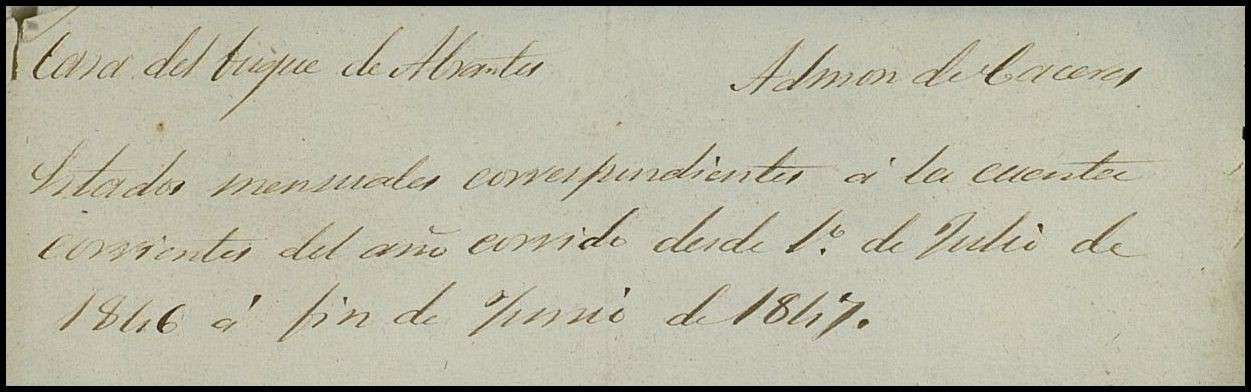 Casa del Duque de Abrantes Admon de Caceres
Estados mensuales correspondientes á la cuenta
corrientes del año corrido desde 1º. de Julio de
1846 á fin de Junio de 1847.